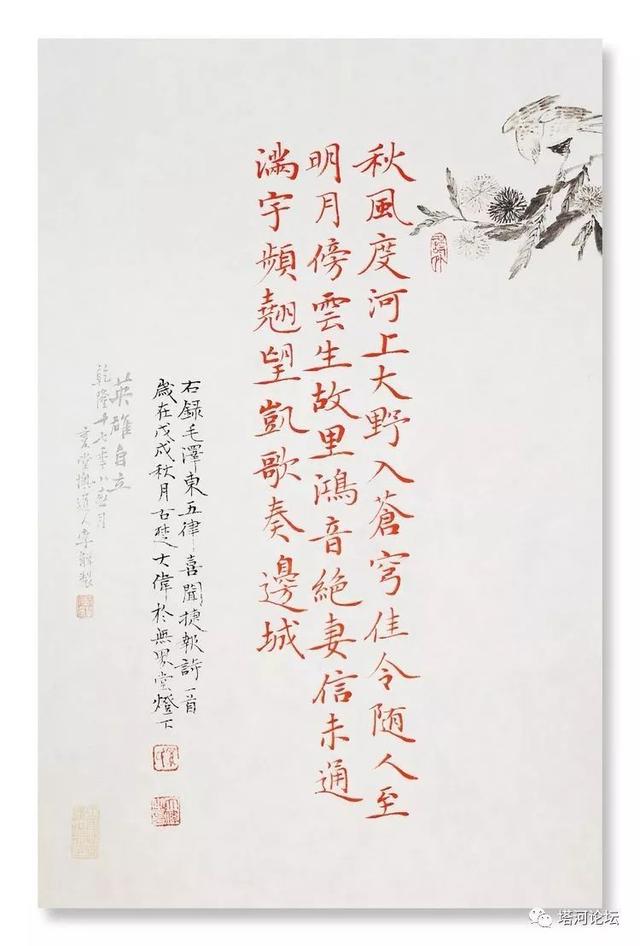 秋風度河上大野入蒼穹佳令随人至
明月傍雲生故里鴻音絶妻信未通
滿宇頻翹望凱歌奏邊城
右錄毛澤東五律喜聞捷報詩一首
歲在戊戌秋月古楚大偉於無界堂燈下
英雄自立
乾隆十七年小春月
道人李鱓製
塔河论坛